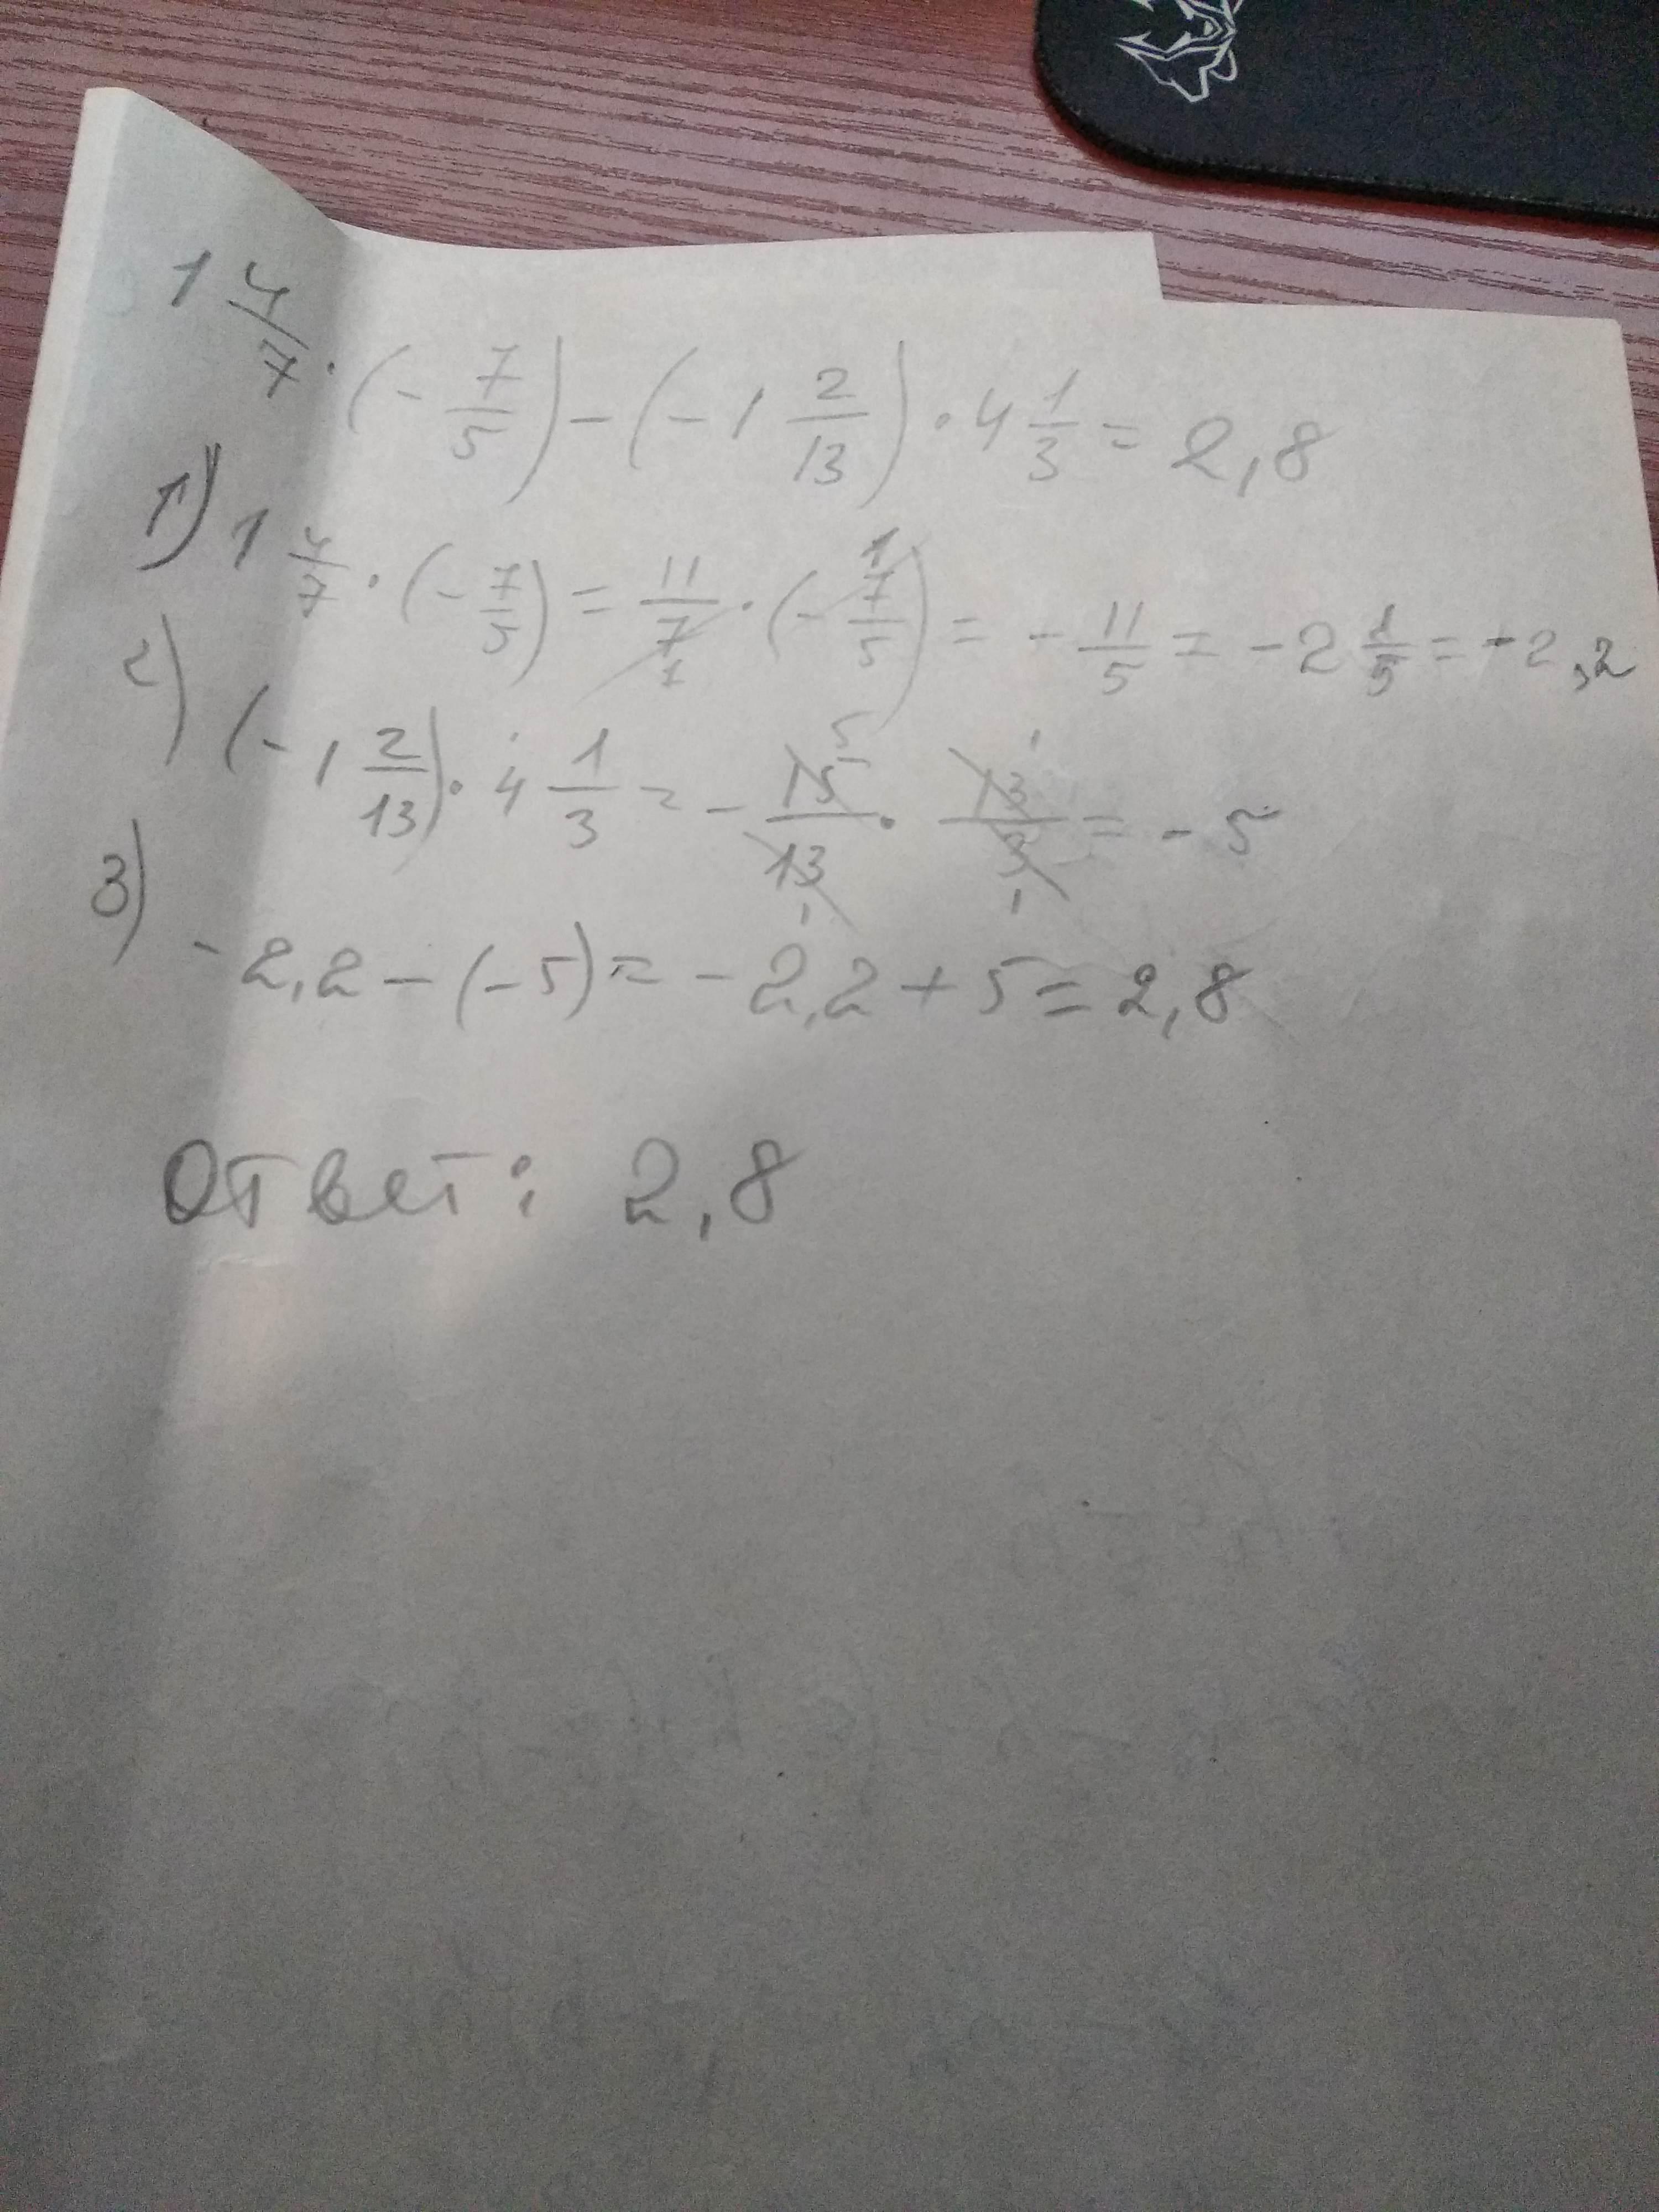 1 4/7 · (- 7/5) - (- 1 2/13) · 4 1/3 = 2,8
1) 1 4/7 · (- 7/5) = 11/7 1 · (- 1 7/5) = - 11/5 = - 2 1/5 = - 2,2
2) (- 1 2/13) · 4 1/3 = - 15 5/13 1 · 13 1/3 1 = - 5
3) - 2,2 - (- 5) = - 2,2 + 5 = 2,8
Ответ: 2,8